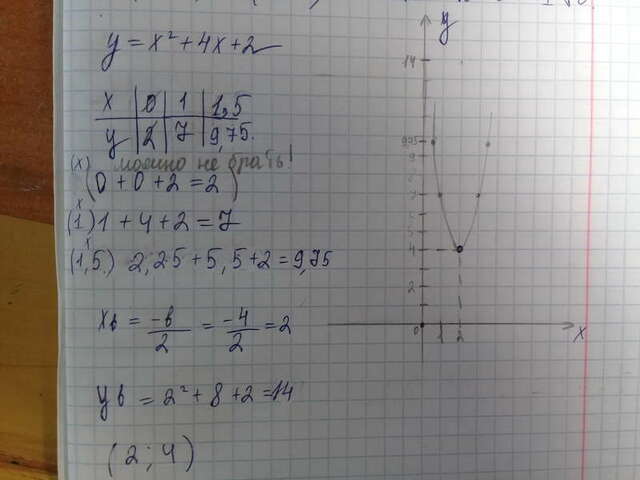 y = x² + 4x + 2
x | 0 | 1 | 1,5
y | 2 | 7 | 9,75.
(x) можно не брать!
(0 + 0 + 2 = 2)
(1) 1 + 4 + 2 = 7
(1,5) 2,25 + 5,5 + 2 = 9,75
xв = -в/2 = -4/2 = 2
yв = 2² + 8 + 2 = 14
(2; 4)
y
14
9,75
9
7
5
4
2
0
1
2
x